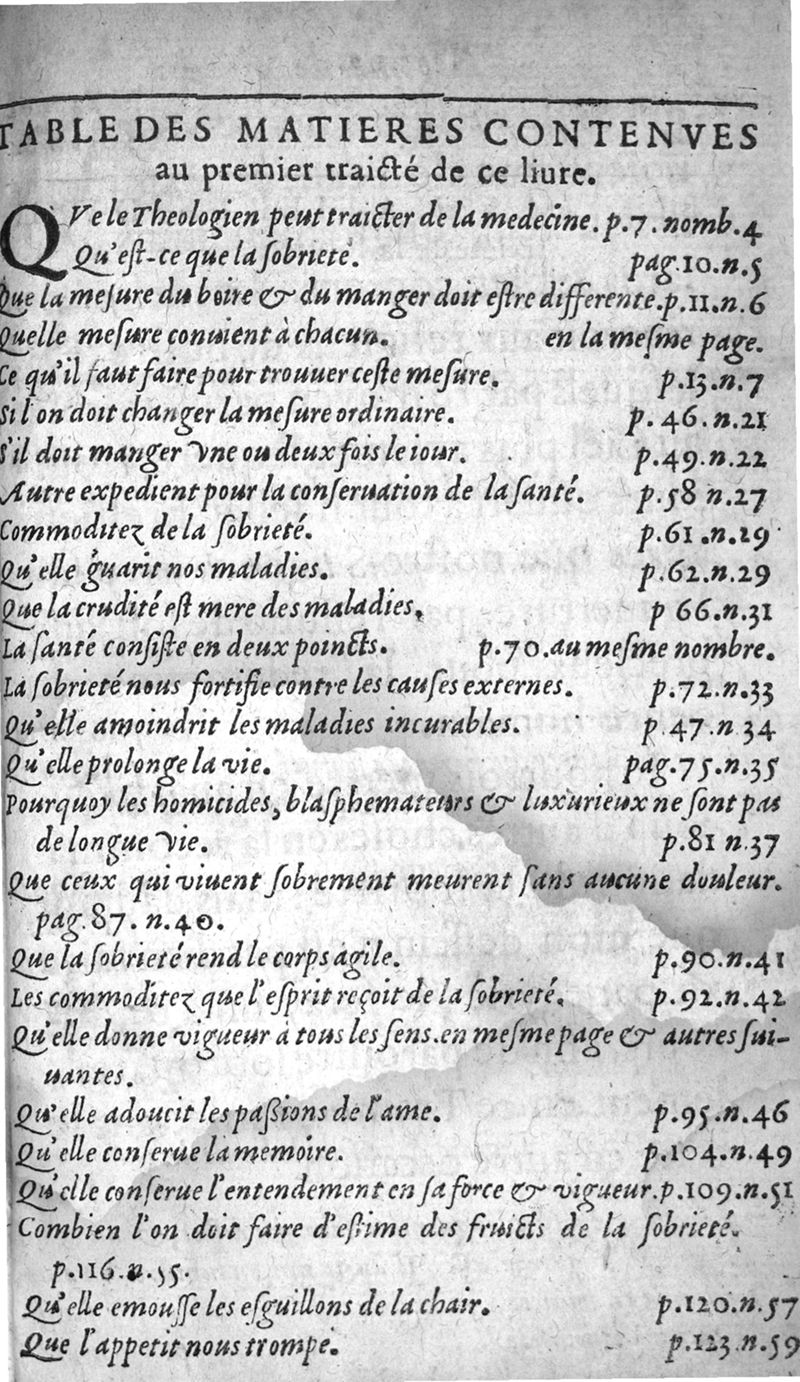 TABLE DES MATIERES CONTENVES
au premier traicté de ce liure.
QVe le Theologien peut traicter de la medecine. p.7. nomb.4
Qu'est-ce que la sobrieté. pag.10.n.5
Que la mesure du boire & du manger doit estre differente.p.11.n.6
Quelle mesure conuient à chacun. en la mesme page.
Ce qu'il faut faire pour trouuer ceste mesure. p.13.n.7
Si l'on doit changer la mesure ordinaire. p. 46.n.21
S'il doit manger vne ou deux fois le iour. p.49.n.22
Autre expedient pour la conseruation de la santé. p.58 n.27
Commoditez de la sobrieté. p.61.n.29
Qu'elle guarit nos maladies. p.62.n.29
Que la crudité est mere des maladies. p 66.n.31
La santé consiste en deux poincts. p.70.au mesme nombre.
La sobrieté nous fortifie contre les causes externes. p.72.n.33
Qu'elle amoindrit les maladies incurables. p 47.n 34
Qu'elle prolonge la vie. pag.75.n.35
Pourquoy les homicides, blasphemateurs & luxurieux ne sont pas
de longue vie. p.81 n.37
Que ceux qui viuent sobrement meurent sans aucune douleur.
pag.87.n.40.
Que la sobrieté rend le corps agile. p.90.n.41
Les commoditez que l'esprit reçoit de la sobrieté. p.92.n.42
Qu'elle donne vigueur à tous les sens.en mesme page & autres sui-
uantes.
Qu'elle adoucit les passions de l'ame. p.95.n.46
Qu'elle conserue la memoire. p.104.n.49
Qu'elle conserue l'entendement en sa force & vigueur.p.109.n.51
Combien l'on doit faire d'estime des fruicts de la sobrieté.
p.116.n.55.
Qu'elle emousse les esguillons de la chair. p.120.n.57
Que l'appetit nous trompe. p.123.n.59